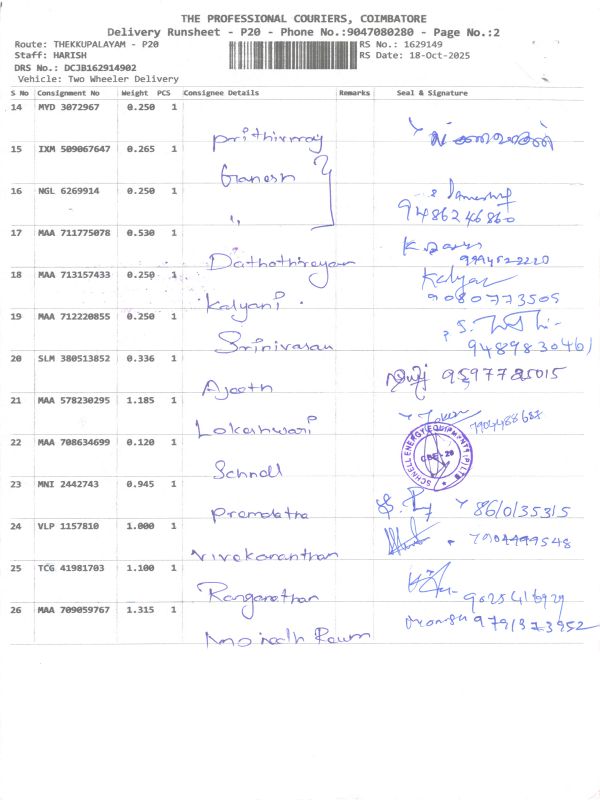 THE PROFESSIONAL COURIERS, COIMBATORE
Delivery Runsheet - P20 - Phone No.:9047080280 - Page No.:2
Route: THEKKUPALAYAM - P20 RS No.: 1629149
Staff: HARISH RS Date: 18-Oct-2025
DRS No.: DCJB162914902
Vehicle: Two Wheeler Delivery
S No Consignment No Weight PCS Consignee Details Remarks Seal & Signature
14 MYD 3072967 0.250 1
Prithivraj
15 IXM 509067647 0.265 1
Ganesh
16 NGL 6269914 0.250 1
"
9486246860
17 MAA 711775078 0.530 1
Dathathireyan
18 MAA 713157433 0.250 1 Kalyani
Kalyani 9080773505
19 MAA 712220855 0.250 1
Srinivasan
20 SLM 380513852 0.336 1
Ajeeth 9597785015
21 MAA 578230295 1.185 1
Lokeshwari
22 MAA 708634699 0.120 1 SCHNELL ENERGY EQUIPMENTS (P) LTD CBE-20
Schnell
23 MNI 2442743 0.945 1
Premalatha
24 VLP 1157810 1.000 1
Vivekananthan
25 TCG 41981703 1.100 1
Ranganathan
26 MAA 709059767 1.315 1